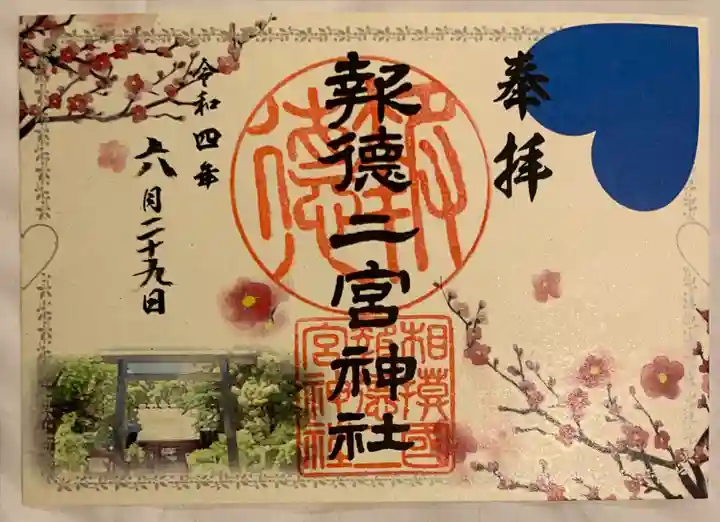 奉拝
報徳二宮神社
令和四年
六月二十九日
報徳
相模國
報徳二
宮神社